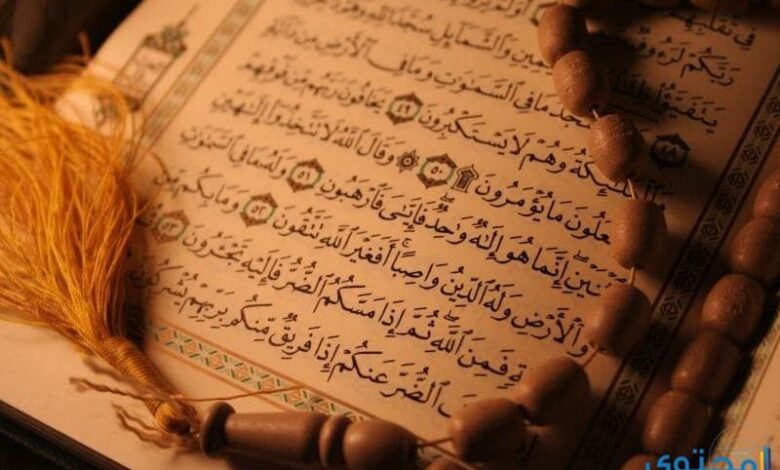 فِي تَقَلُّبِهِمْ
رَبَّكُمْ لَرَءُوفٌ أَوَلَمْ يَرَوْا
يَتَفَيَّؤُا ظِلَٰلُهُۥ ٱلْيَمِينِ وَٱلشَّمَآئِلِ سُجَّدًا لِّلَّهِ وَهُمْ
٤٨ يَسْجُدُ مَا فِى ٱلسَّمَٰوَٰتِ وَمَا فِى ٱلْأَرْضِ مِن دَآبَّةٍ
وَٱلْمَلَٰٓئِكَةُ وَهُمْ لَا يَسْتَكْبِرُونَ ٤٩ يَخَافُونَ رَبَّهُم مِّن فَوْقِهِمْ
عَلُونَ مَا يُؤْمَرُونَ ۩ ٥٠ ۞ وَقَالَ ٱللَّهُ لَا تَتَّخِذُوٓا۟ إِلَٰهَيْنِ
نَيْنِ إِنَّمَا هُوَ إِلَٰهٌ وَٰحِدٌ فَإِيَّٰىَ فَٱرْهَبُونِ ٥١ وَلَهُۥ مَا فِى ٱلسَّمَٰوَٰتِ
وَٱلْأَرْضِ وَلَهُ ٱلدِّينُ وَاصِبًا أَفَغَيْرَ ٱللَّهِ تَتَّقُونَ ٥٢ وَمَا بِكُم مِّن
ةٍ فَمِنَ ٱللَّهِ ثُمَّ إِذَا مَسَّكُمُ ٱلضُّرُّ فَإِلَيْهِ تَجْـَٔرُونَ ٥٣
فَ ٱلضُّرَّ عَنكُمْ إِذَا فَرِيقٌ مِّنكُم بِرَبِّهِمْ يُشْرِكُونَ
المحتوى